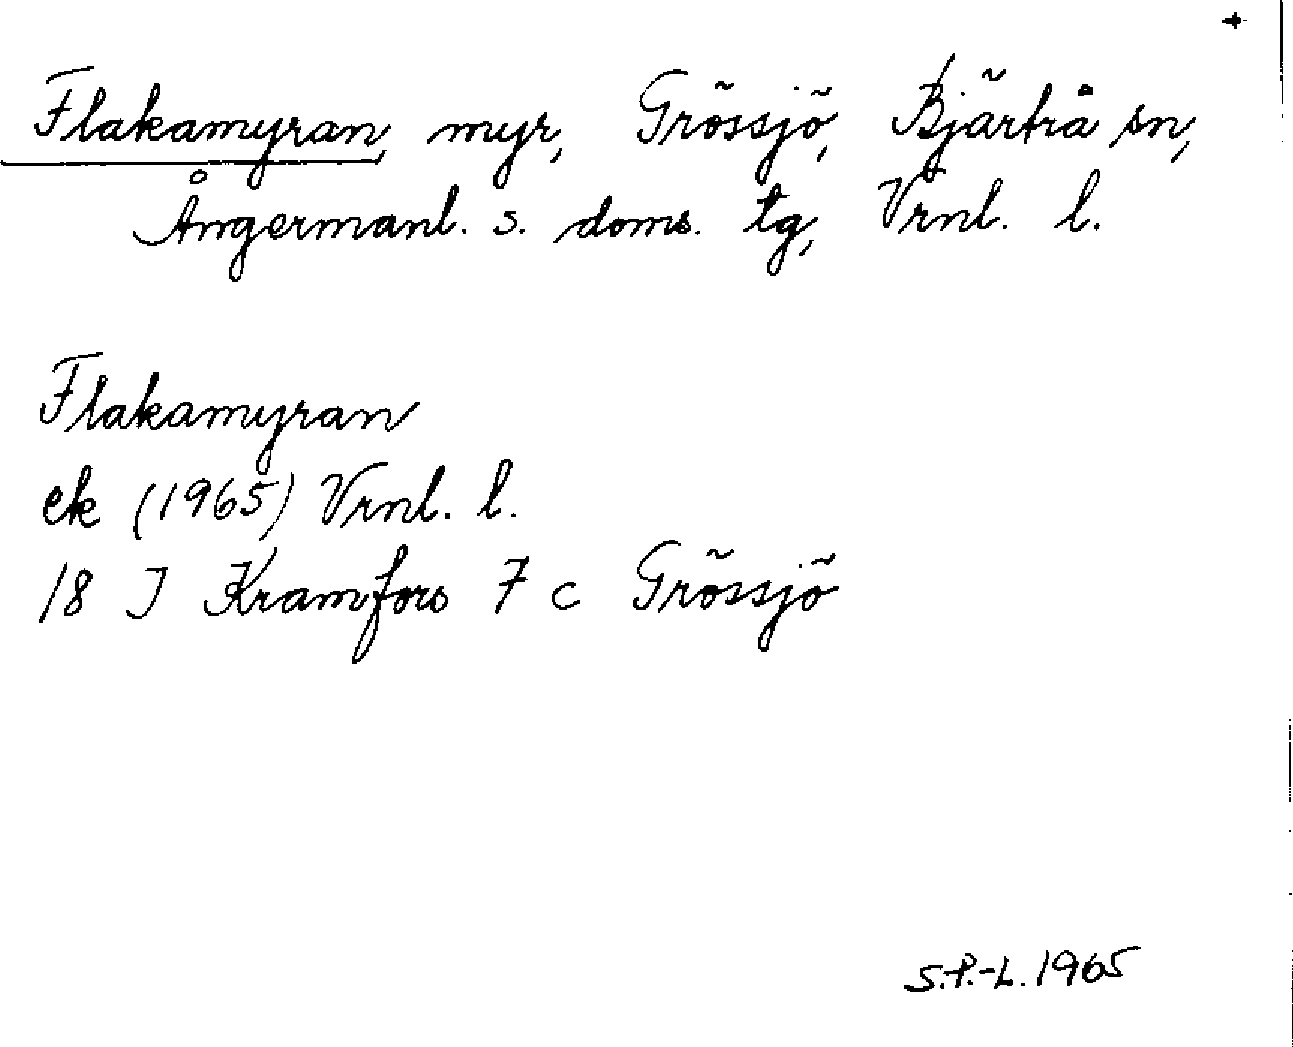 +
Flakamyran, myr, Grössjö, Bjärtrå sn,
Ångermanl. s. doms. tg, Vrnl. l.
Flakamyran
ek (1965) Vrnl. l.
18 I Kramfors 7 c Grössjö
S.P.-L. 1965